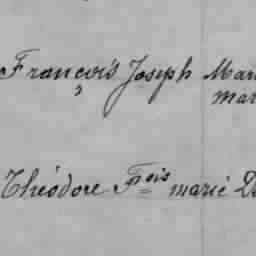 François Joseph Mar
mar
Théodore Fois marie